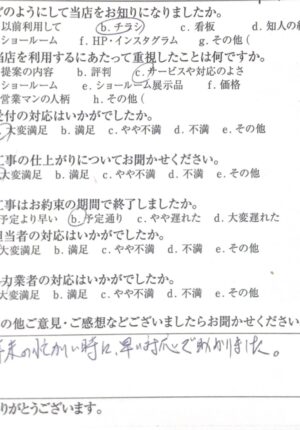 どのようにして当店をお知りになりましたか。
以前利用して b. チラシ c. 看板 d. 知人の
ショールーム f. HP・インスタグラム g. その他 (
当店を利用するにあたって重視したことは何ですか。
提案の内容 b. 評判 c. サービスや対応のよさ
ショールーム e. ショールーム展示品 f. 価格
営業マンの人柄 h. その他 (
受付の対応はいかがでしたか。
大変満足 b. 満足 c. やや不満 d. 不満 e. その他
工事の仕上がりについてお聞かせください。
大変満足 b. 満足 c. やや不満 d. 不満 e. その他
工事はお約束の期間で終了しましたか。
予定より早い b. 予定通り c. やや遅れた d. 大変遅れた
担当者の対応はいかがでしたか。
大変満足 b. 満足 c. やや不満 d. 不満 e. その他
力業者の対応はいかがでしたか。
大変満足 b. 満足 c. やや不満 d. 不満 e. その他
の他ご意見・ご感想などございましたらお聞かせください
年末の忙がしい時に、早い対応で助かりました。
りがとうございます。